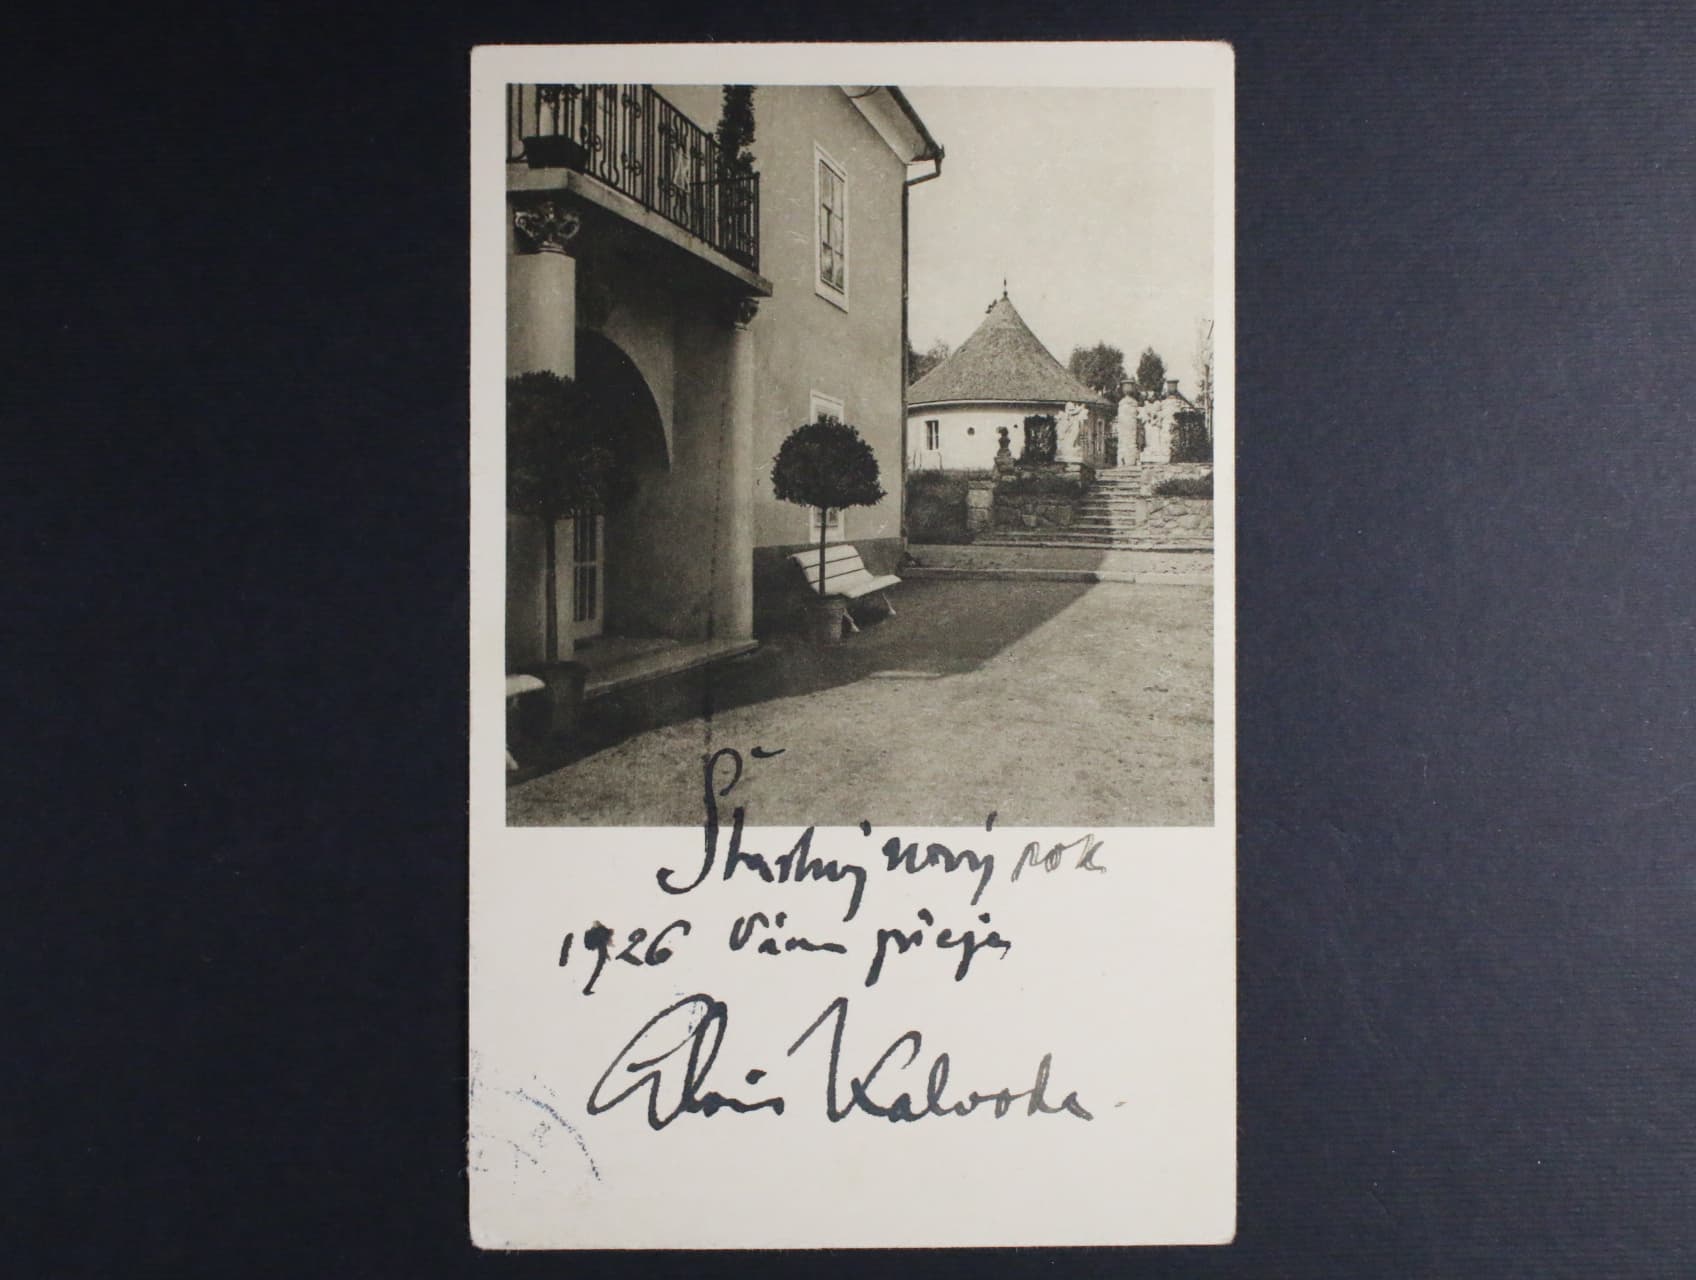 Šťastný nový rok
1926 Vám přeje
Alois Kalvoda